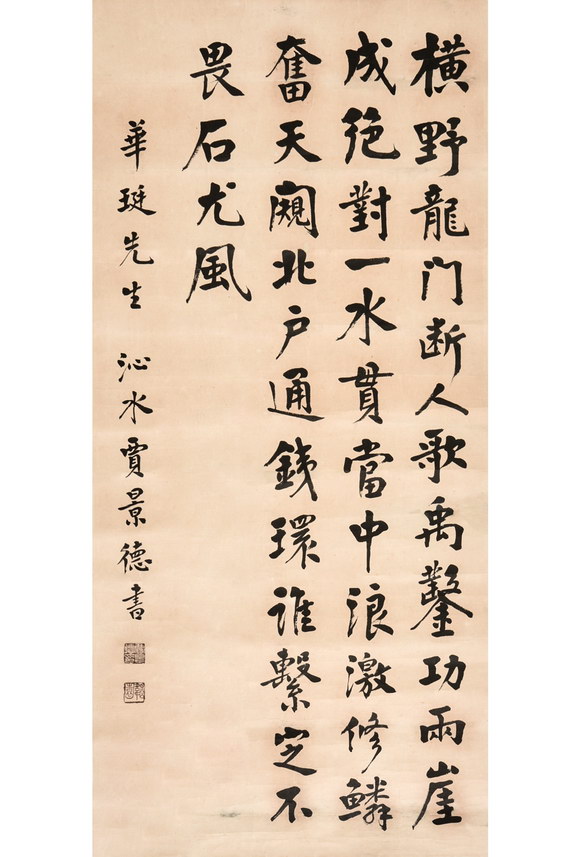 橫野龍门斷人歌禹鑿功兩崖
成絶對一水貫當中浪激修鱗
奮天闚北户通銕環誰繫定不
畏石尤風
華珽先生 沁水賈景德書